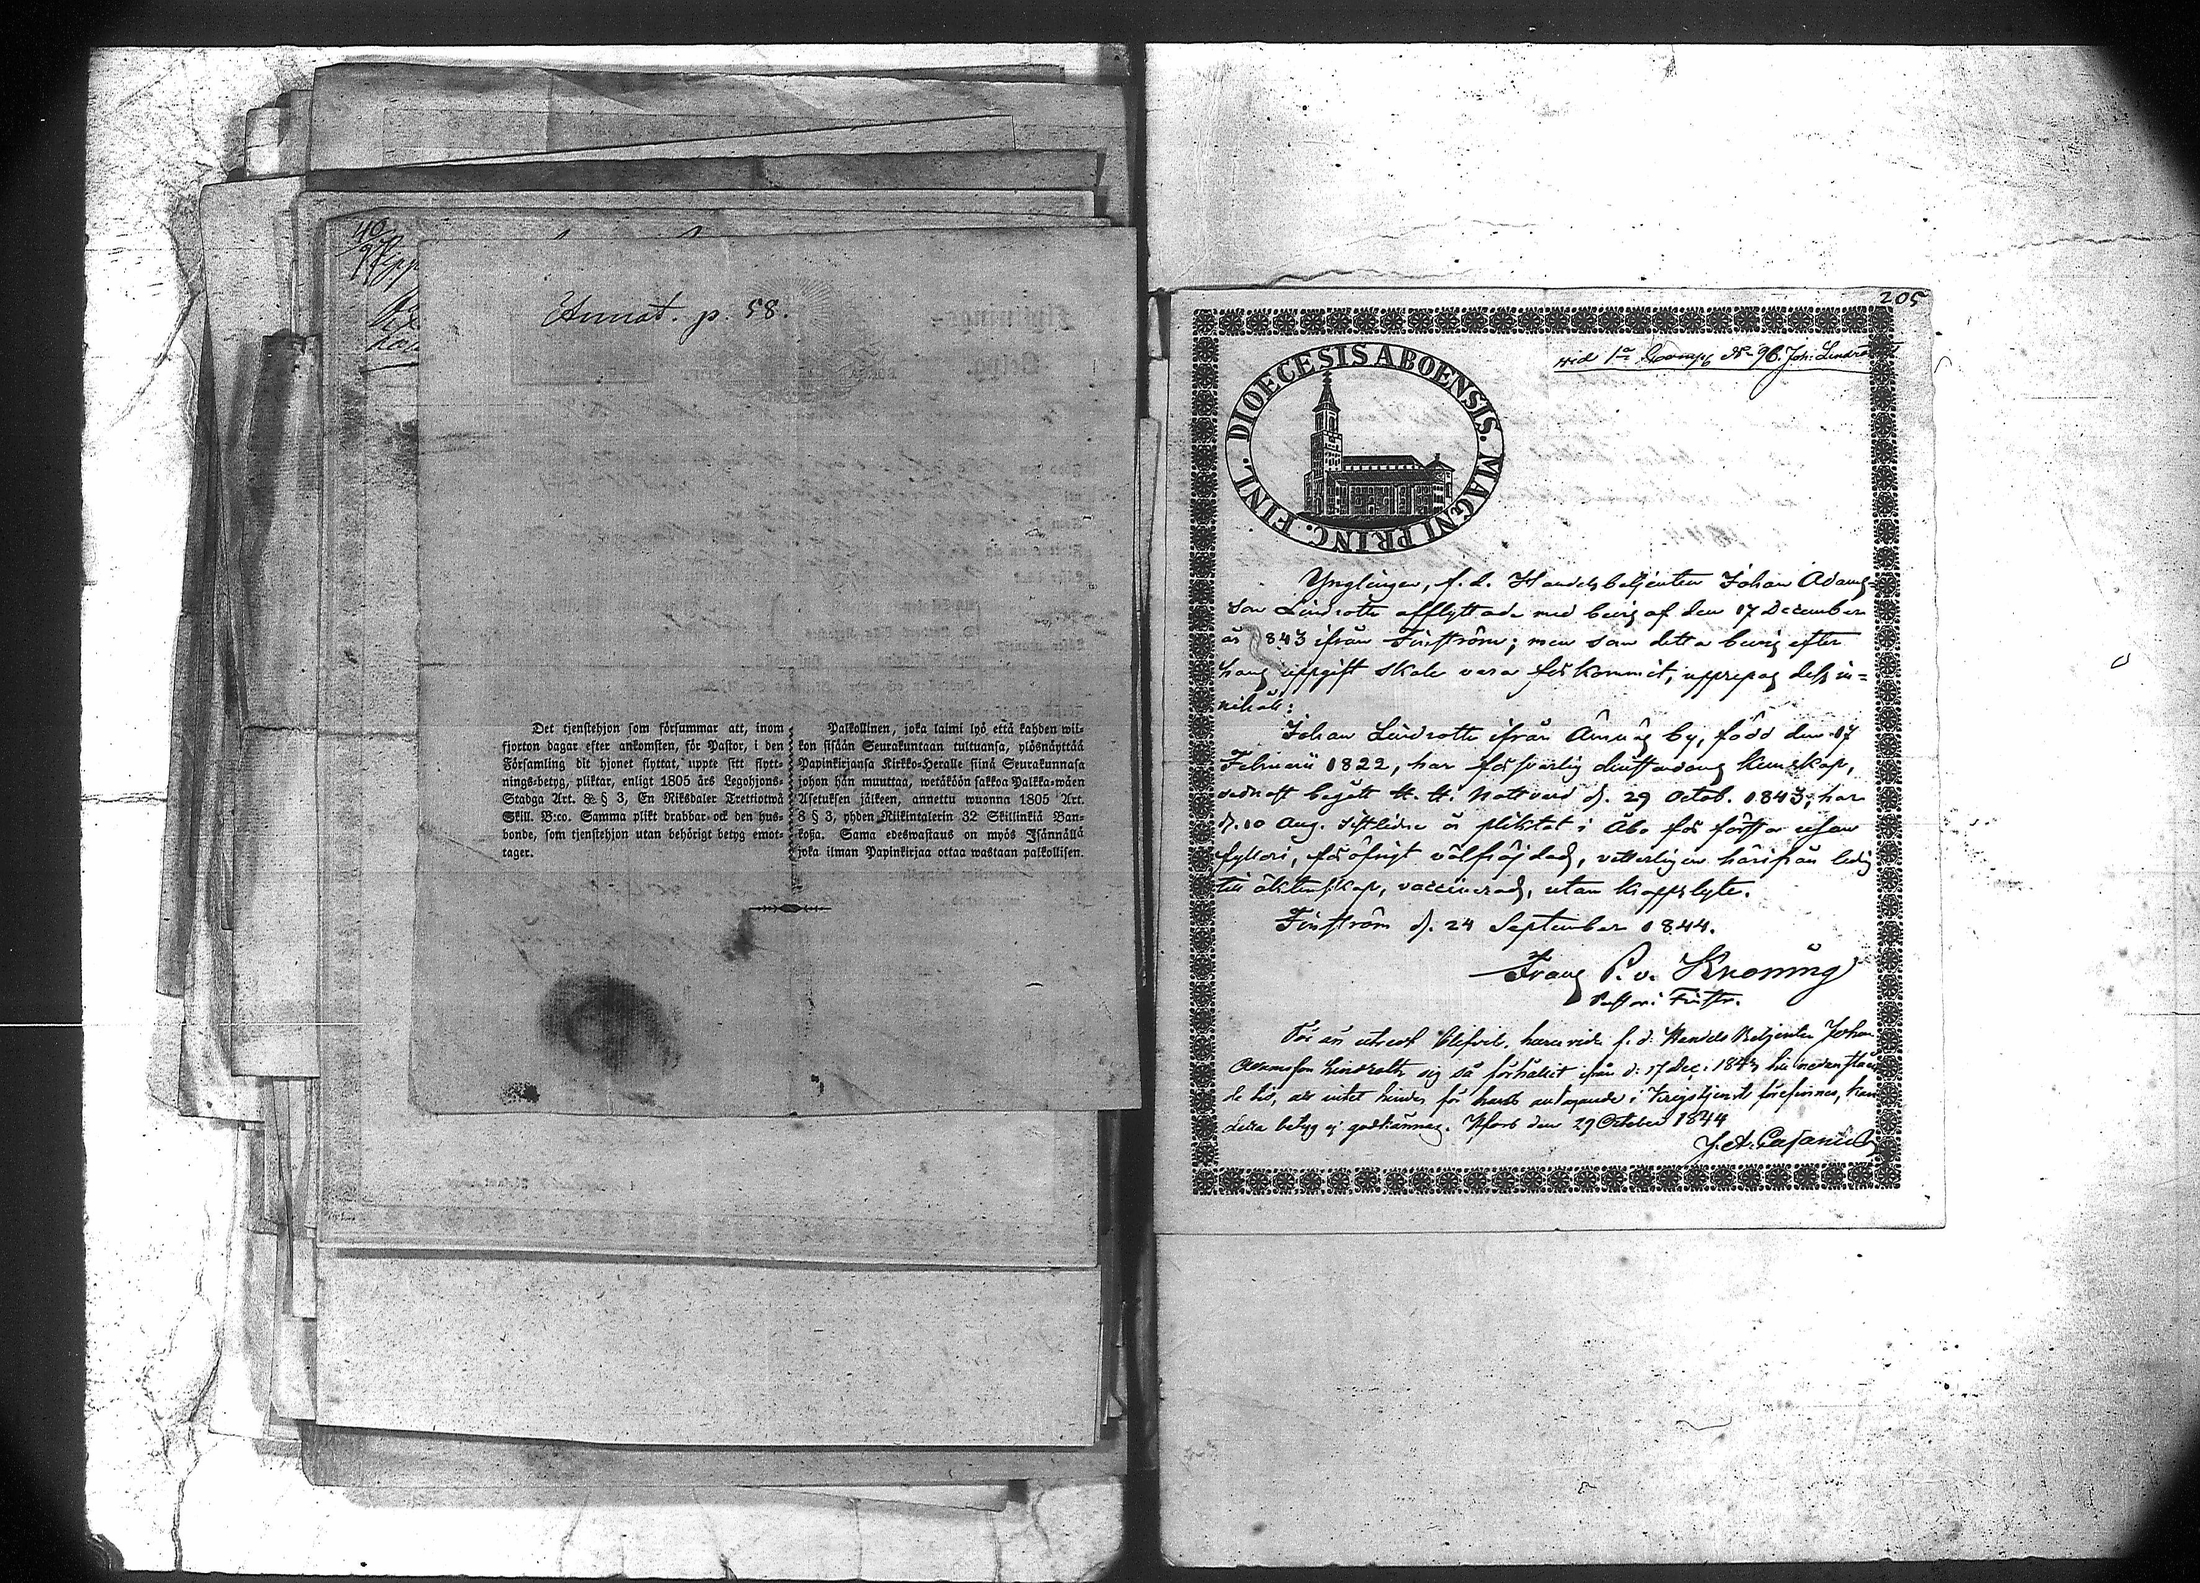 40
Annot. p. 58.
Det tjenstehjon som försummar att, inom
fjorton dagar efter ankomsten, för Pastor, i den
Församling dit hjonet flyttat, uppte sitt flytt-
nings-betyg, pliktar, enligt 1805 års Legohjons-
Stadga Art. 8 § 3, En Riksdaler Trettiotwå
Skill. B:co. Samma plikt drabbar ock den hus-
bonde, som tjenstehjon utan behörigt betyg emot-
tager.
Palkollinen, joka laimi lyö että kahden wii-
kon sisään Seurakuntaan tultuansa, ylösnäyttää
Papinkirjansa Kirkko-Heralle siinä Seurakunnasa
johon hän muuttaa, wetäköön sakkoa Palkka-wäen
Asetuksen jälkeen, annettu wuonna 1805 Art.
8 § 3, yhden Riikintalerin 32 Skillinkiä Ban-
kosa. Sama edeswastaus on myös Isännällä
joka ilman Papinkirjaa ottaa wastaan palkollisen.
205
vid 1a Comp. No 96. Joh: Lindroth
DIOECESIS ABOENSIS. MAGNI PRINC. FINL.
Ynglingen, f. d. Handelsbetjenten Johan Adams-
son Lindroth afflyttade med bevis af den 17 December
år 1843 ifrån Finström; men som detta bevis efter
hans uppgift skale vara förkommit, upprepas dess in-
nehåll:
Johan Lindroth ifrån Ämnäs by, född den 17
Februarii 1822, har försvarlig christendoms kunskap,
sednast begått H. H. Nattvard d. 29 Octob. 1843, har
d. 10 Aug. sistledne år pliktat i Åbo för första resan
fylleri, för öfrigt välfrejdad, vetterligen härifrån ledig
till äktenskap, vaccinerad, utan kroppslyte.
Finström d. 24 September 1844.
Frans P. v. Knorring
Pastor i Finstr.
Adamsson Lindroth sig så förhållit ifrån d: 17 Dec: 1843 till nedanståen
de tid, att intet hinder för hans antagande i Krigstjenst förefinnes, kan
detta betyg ej godkännas. Hfors den 29 October 1844